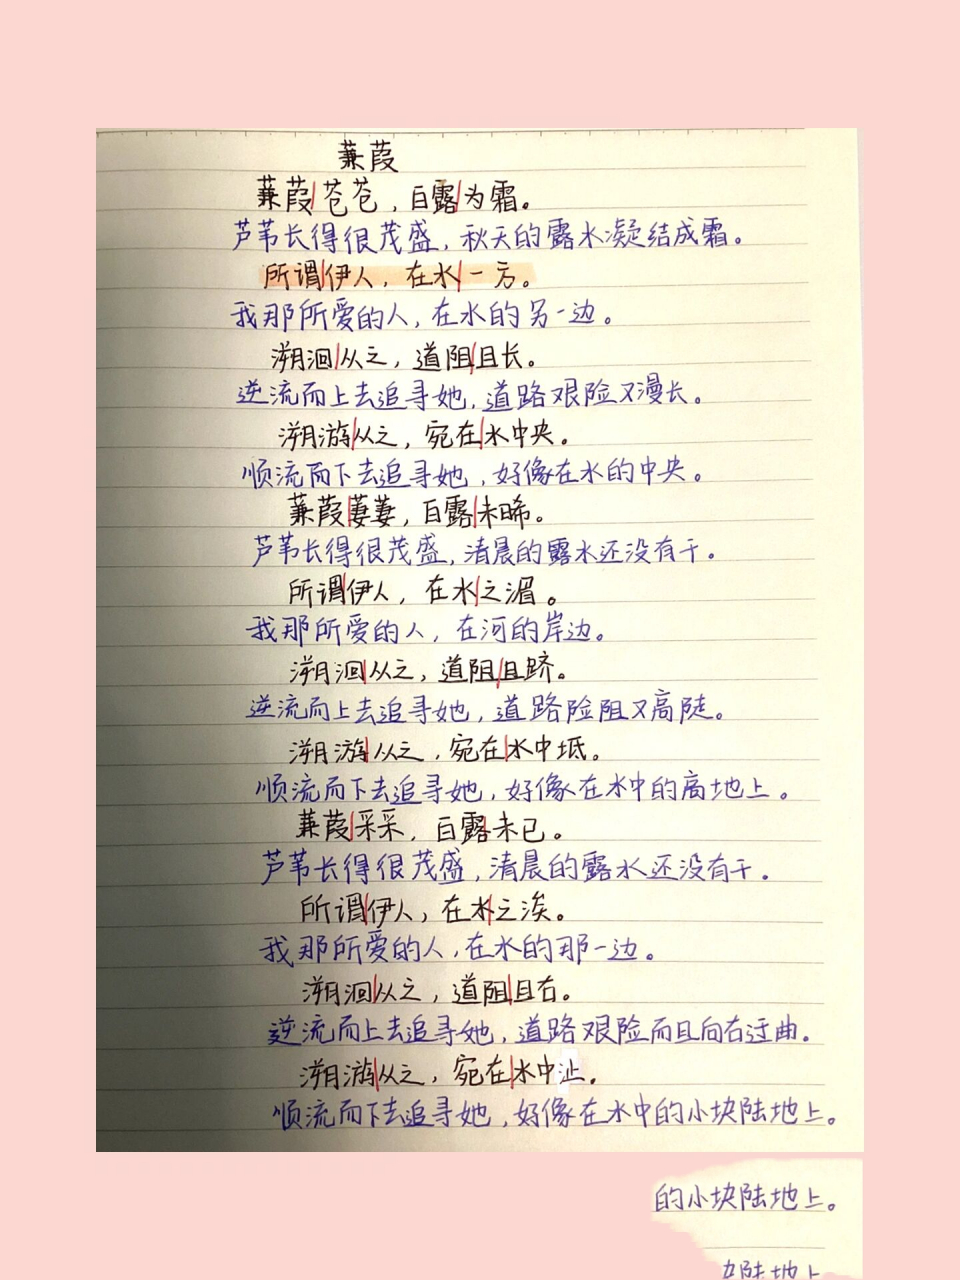 蒹葭
蒹葭|苍苍，白露|为霜。
芦苇长得很茂盛，秋天的露水凝结成霜。
所谓|伊人，在水|一方。
我那所爱的人，在水的另一边。
溯洄|从之，道阻|且长。
逆流而上去追寻她，道路艰险又漫长。
溯游|从之，宛在|水中央。
顺流而下去追寻她，好像在水的中央。
蒹葭|萋萋，白露|未晞。
芦苇长得很茂盛，清晨的露水还没有干。
所谓|伊人，在水|之湄。
我那所爱的人，在河的岸边。
溯洄|从之，道阻|且跻。
逆流而上去追寻她，道路险阻又高陡。
溯游|从之，宛在|水中坻。
顺流而下去追寻她，好像在水中的高地上。
蒹葭|采采，白露|未已。
芦苇长得很茂盛，清晨的露水还没有干。
所谓|伊人，在水|之涘。
我那所爱的人，在水的那一边。
溯洄|从之，道阻|且右。
逆流而上去追寻她，道路艰险而且向右迂曲。
溯游|从之，宛在|水中沚。
顺流而下去追寻她，好像在水中的小块陆地上。
的小块陆地上。